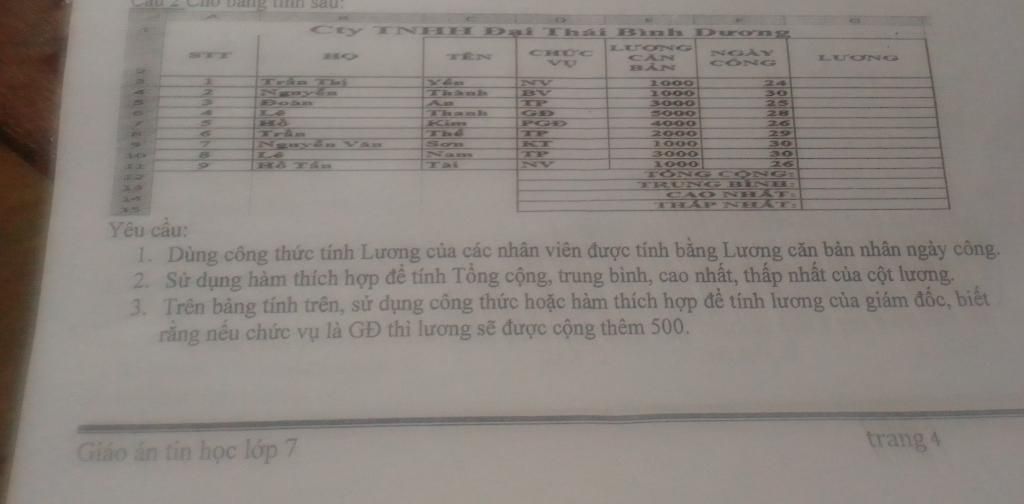 Câu 2 Cho bảng tính sau:
A B C D E F G
1 Cty TNHH Đại Thái Bình Dương
2 STT HỌ TÊN CHỨC VỤ LƯƠNG CĂN BẢN NGÀY CÔNG LƯƠNG
3 1 Trần Thị Yến NV 1000 24
4 2 Nguyễn Thành BV 1000 30
5 3 Đoàn An TP 3000 25
6 4 Lê Thanh GĐ 5000 28
7 5 Hồ Kim PGĐ 4000 26
8 6 Trần Thế TP 2000 29
9 7 Nguyễn Văn Sơn KT 1000 30
10 8 Lê Nam TP 3000 30
11 9 Hồ Tấn Tài NV 1000 26
12 TỔNG CỘNG:
13 TRUNG BÌNH:
14 CAO NHẤT:
15 THẤP NHẤT:
Yêu cầu:
1. Dùng công thức tính Lương của các nhân viên được tính bằng Lương căn bản nhân ngày công.
2. Sử dụng hàm thích hợp để tính Tổng cộng, trung bình, cao nhất, thấp nhất của cột lương.
3. Trên bảng tính trên, sử dụng công thức hoặc hàm thích hợp để tính lương của giám đốc, biết
rằng nếu chức vụ là GĐ thì lương sẽ được cộng thêm 500.
Giáo án tin học lớp 7
trang 4